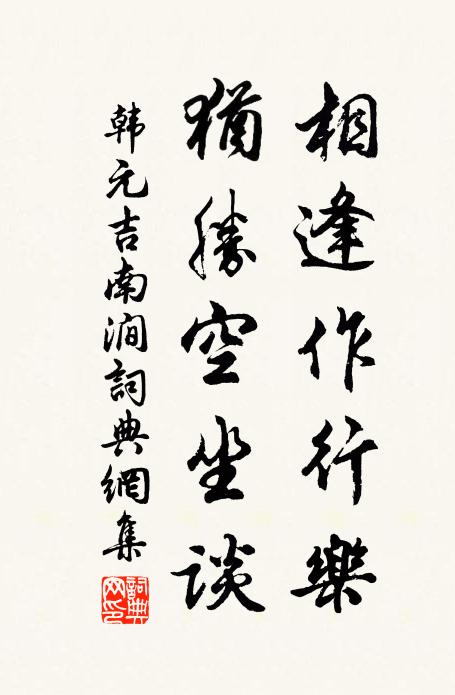 相逢作行樂
猶勝空坐談
韩元吉南澗詞典網集
詞典網印